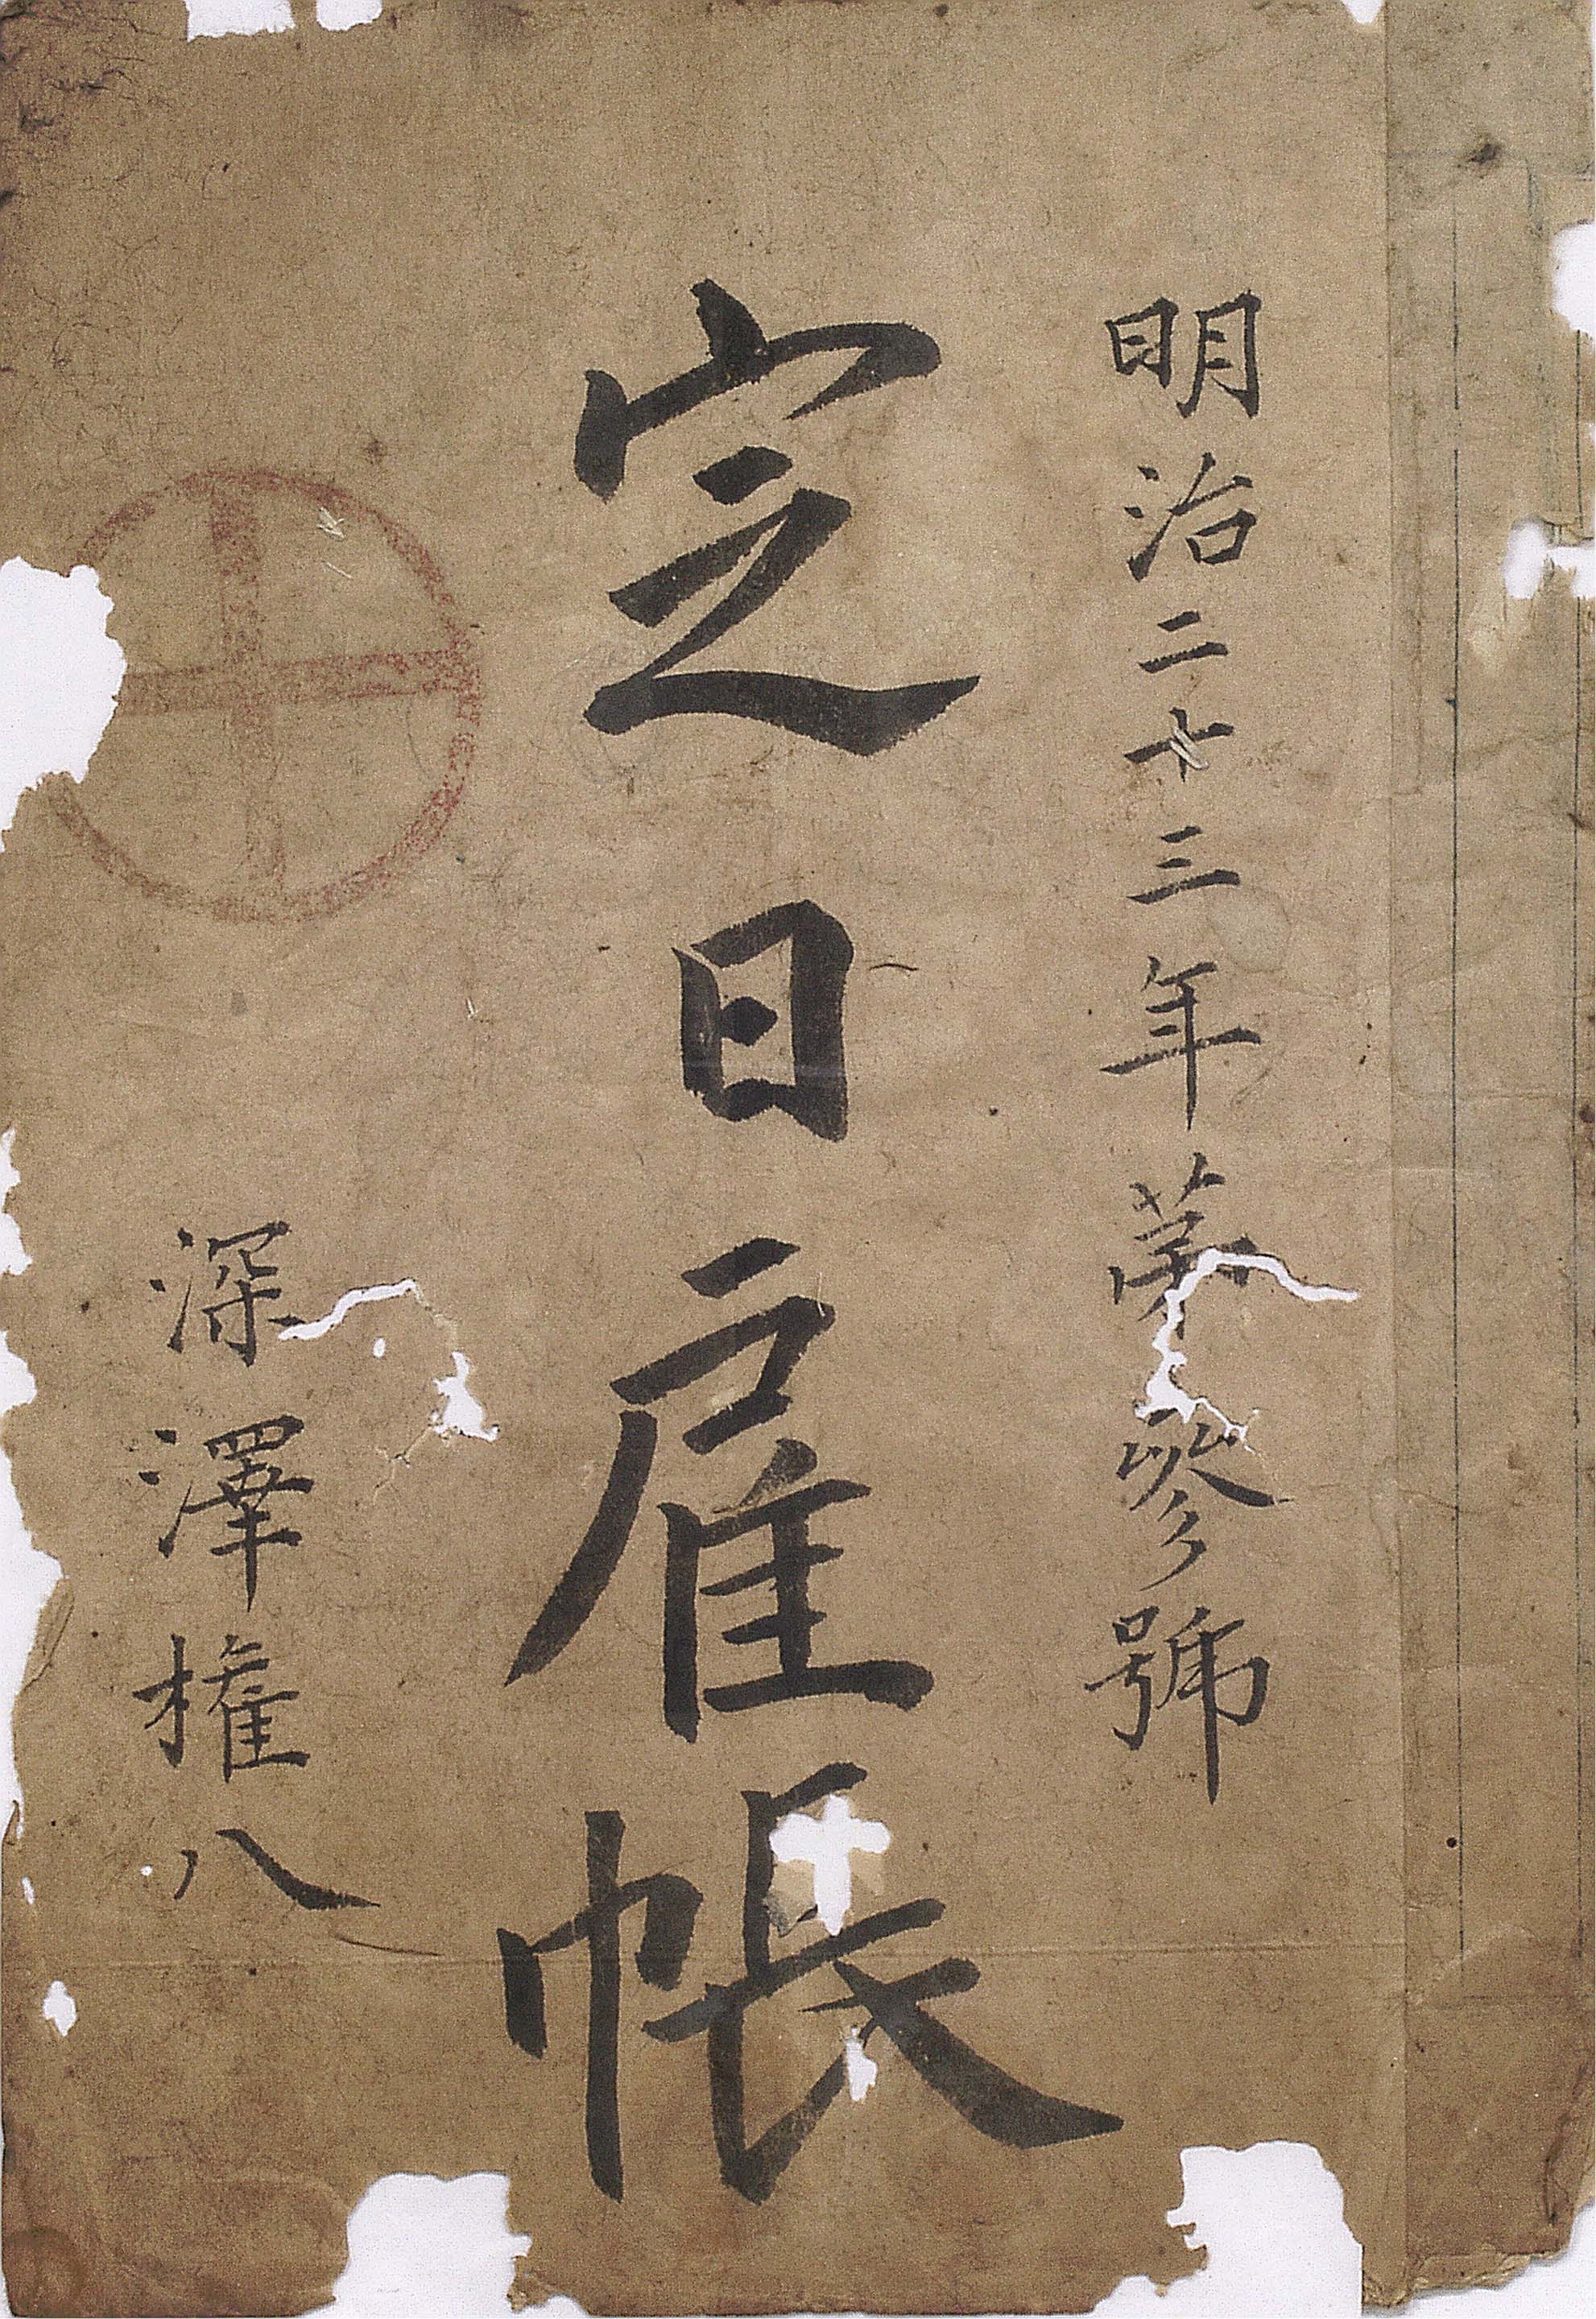 明治二十三年第参號
定日雇帳
深澤権八